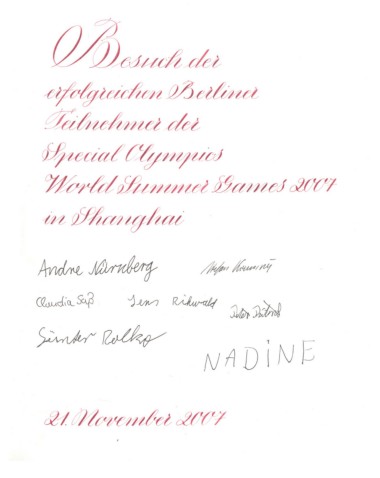 Besuch der
erfolgreichen Berliner
Teilnehmer der
Special Olympics
World Summer Games 2007
in Shanghai
Andre Nürnberg
Claudia Jens
Rolko
NADINE
21. November 2007